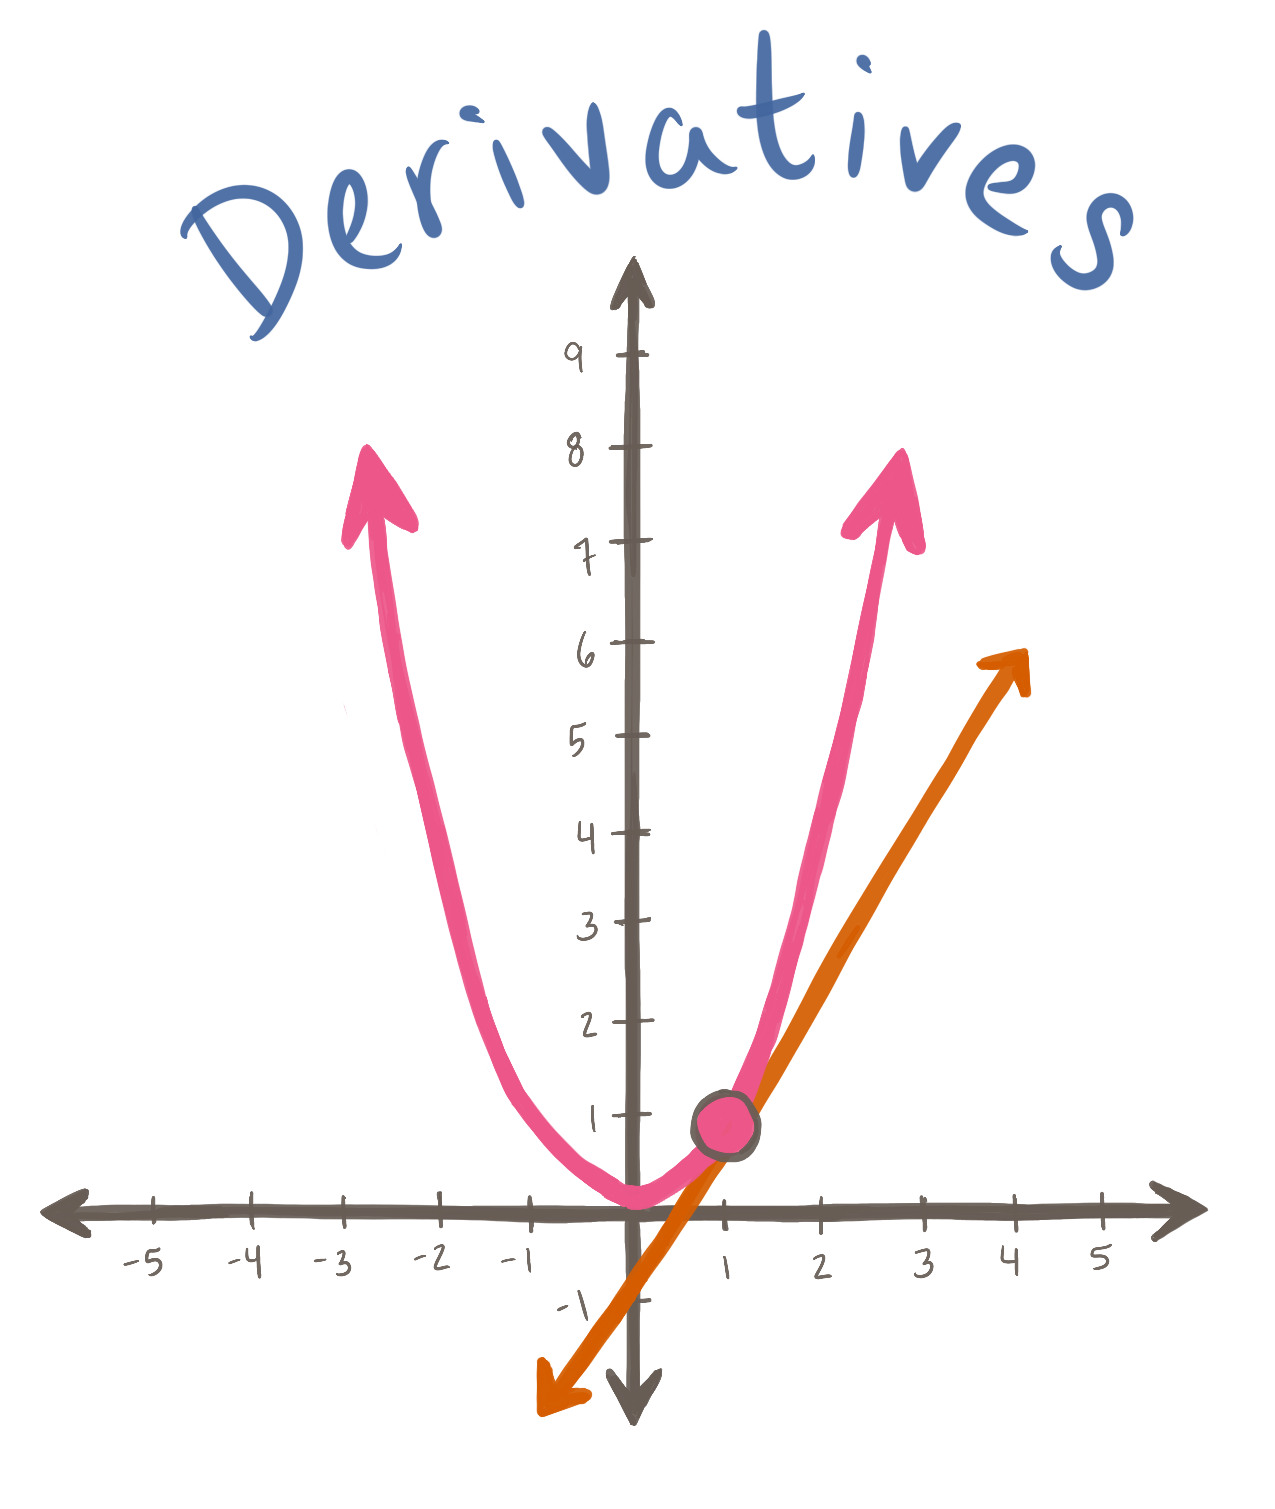 Derivatives
9
8
7
6
5
4
3
2
1
-5 -4 -3 -2 -1 1 2 3 4 5
-1